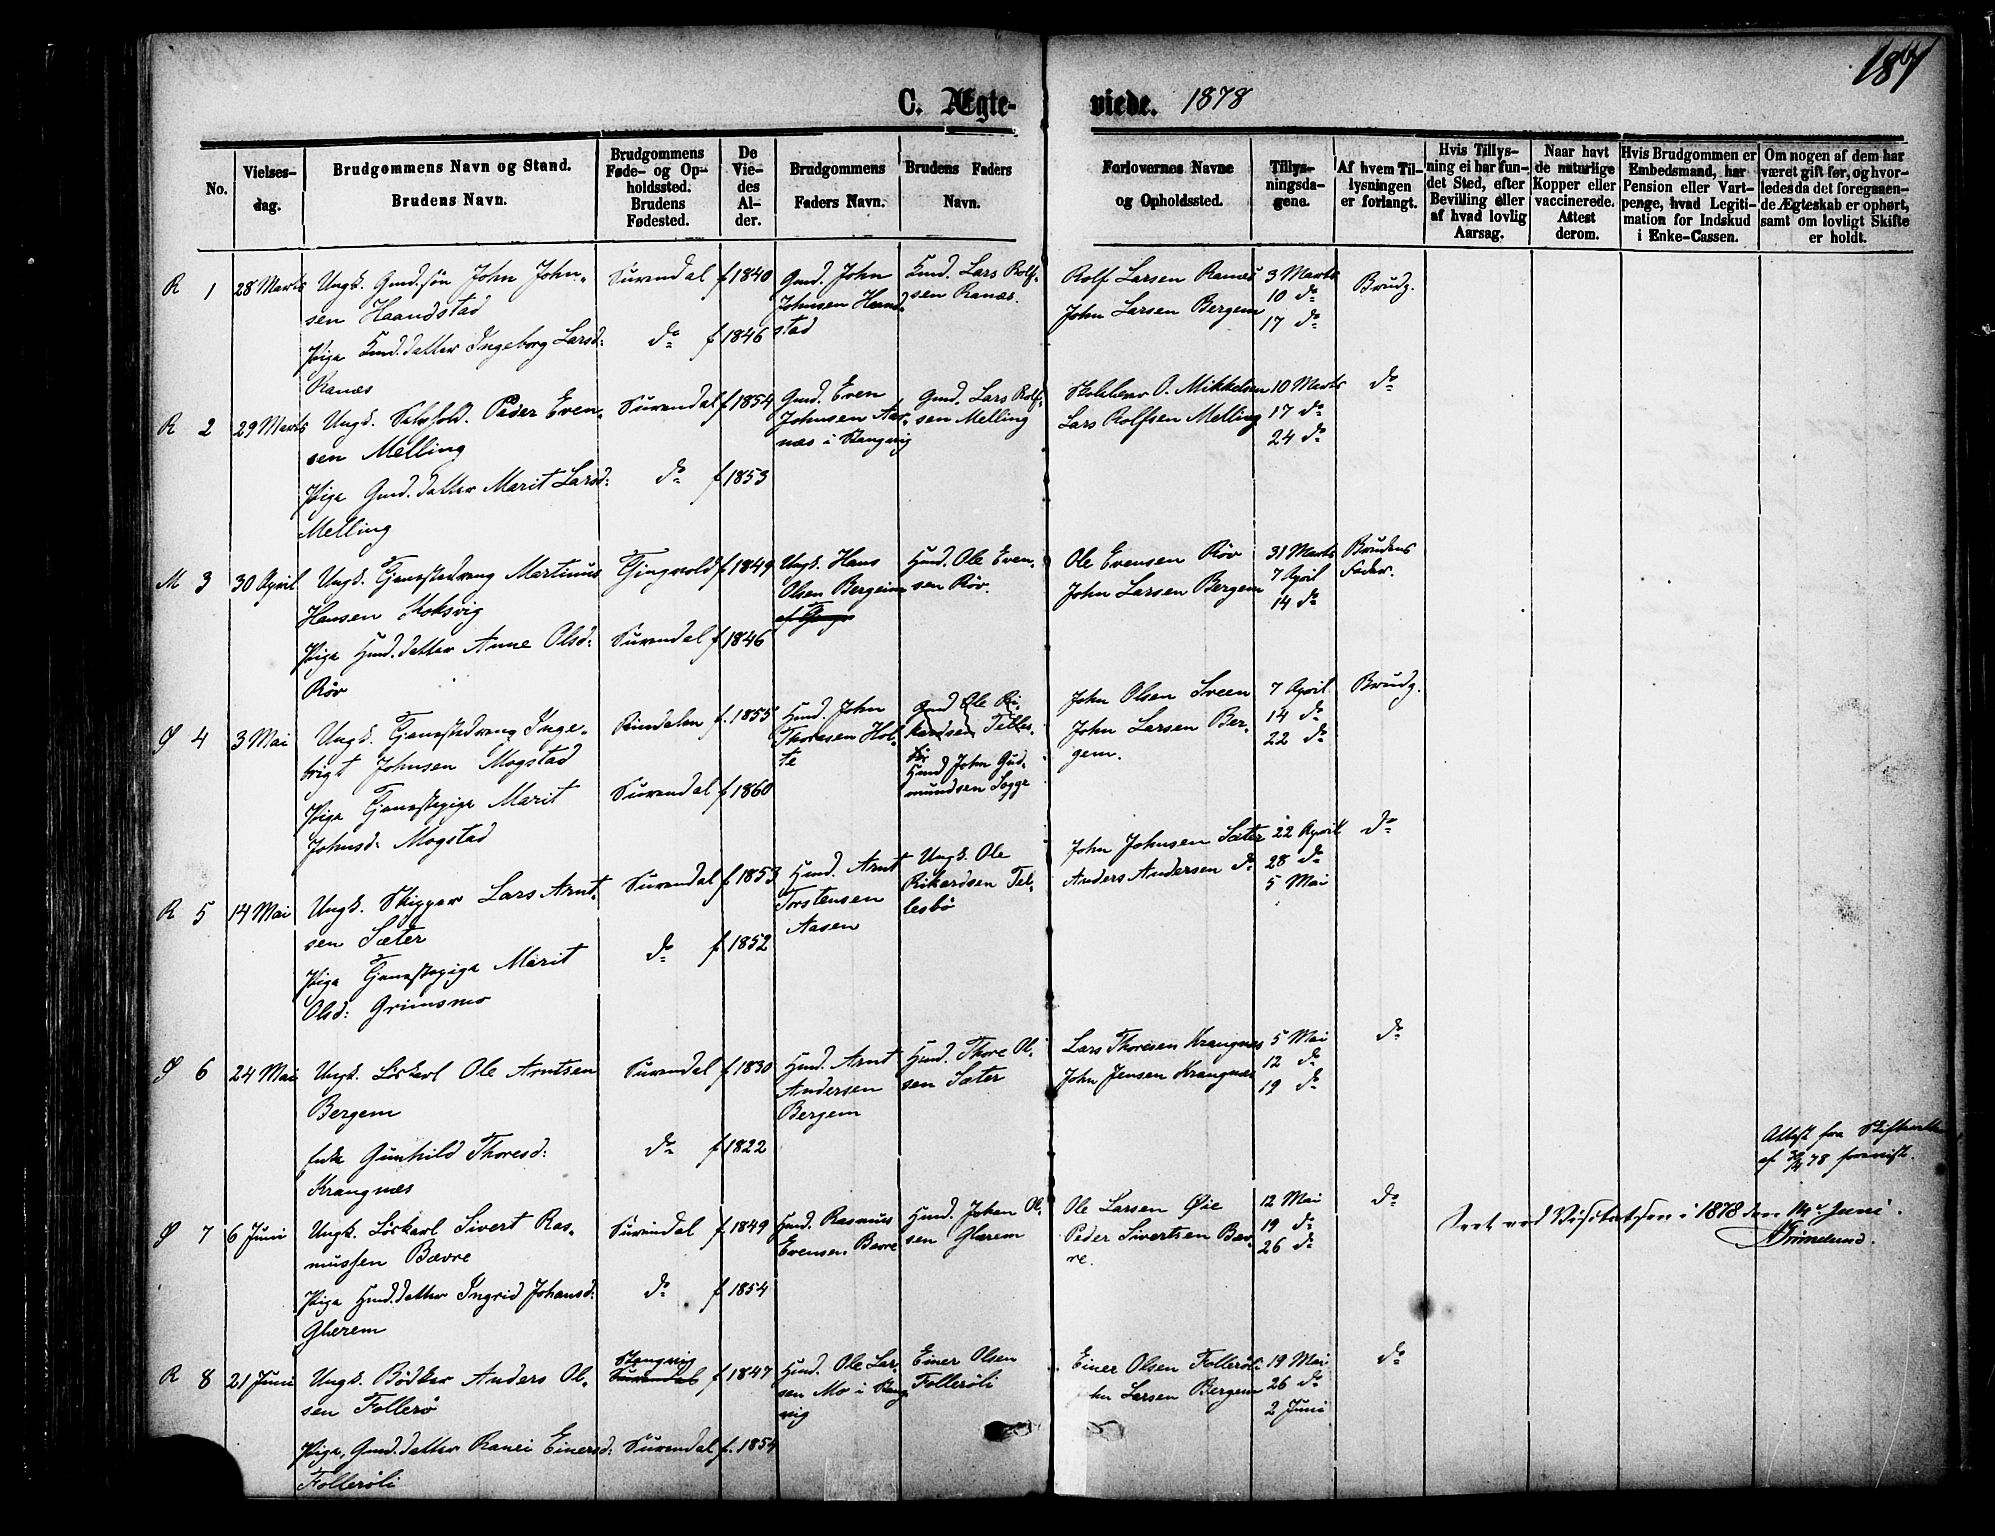 187
C. Ægte- viede. 1878
No.
Vielses-
dag.
Brudgommens Navn og Stand.
Brudens Navn.
Brudgommens
Føde- og Op-
holdssted.
Brudens
Fødested.
De
Vie-
des
Al-
der.
Brudgommens
Faders Navn.
Brudens Faders
Navn.
Forlovernes Navne
og Opholdssted.
Tillys-
ningsda-
gene.
Af hvem Til-
lysningen
er forlangt.
Hvis Tillys-
ning ei har fun-
det Sted, efter
Bevilling eller
af hvad lovlig
Aarsag.
Naar havt
de naturlige
Kopper eller
vaccinerede.
Attest
derom.
Hvis Brudgommen er
Embedsmand, har
Pension eller Vart-
penge, hvad Legiti-
mation for Indskud
i Enke-Cassen.
Om nogen af dem har
været gift før, og hvor-
ledes da det foregaaen-
de Ægteskab er ophørt,
samt om lovligt Skifte
er holdt.
R 1 28 Marts
Ungk. Gmd.søn John John-
sen Haandstad
Pige Kmd.datter Ingeborg Larsd:
Ranæs
Surendal f 1840
do f 1846
Gmd. John
Johnsen Haand-
stad
Kmd. Lars Rolf-
sen Ranæs.
Rolf Larsen Ranæs
John Larsen Bergem
3 Marts
10 do
17 do
Brudg.
R 2 29 Marts
Ungk. Selvfold. Peder Even-
sen Melling
Pige Gmd.datter Marit Larsd:
Melling
Surendal f 1854
do f 1853
Gmd. Even
Johnsen Aar-
næs i Stangvig
Gmd. Lars Rolf-
sen Melling
Skolelærer O. Mikkelsen
Lars Rolfsen Melling
10 Marts
17 do
24 do
do
M 3 30 April
Ungk. Tjenestedreng Martinus
Hansen Koksvig
Pige Hmd.datter Anne Olsd:
Røv
Tingvold f 1849
Surendal f. 1846
Ungk. Hans
Olsen Bergeim
Hmd. Ole Even-
sen Røv.
Ole Evensen Røv
John Larsen Bergem
31 Marts
7 April
14 do
Brudens
Fader.
Ø 4 3 Mai
Ungk. Tjenestedreng Inge-
brigt Johnsen Mogstad
Pige Tjenestepige Marit
Johnsd: Mogstad
Rindalen f. 1855
Surendal f 1860
Hmd. John
Thoresen Hol-
te
Gmd Ole Ri-
kardsen Telles-
bø
Hmd John Gud-
mundsen Sogge
John Olsen Sveen
John Larsen Ber-
gem.
7 April
14 do
22 do
Brudg.
R 5 14 Mai
Ungk. Skipper Lars Arnt-
sen Sæter
Pige Tjenestepige Marit
Olsd: Grimsmo
Surendal f 1853
do f. 1852
Hmd. Arnt
Torstensen
Aasen
Ungk. Ole
Rikardsen Tel-
lesbø
John Johnsen Sæter
Anders Andersen do
22 April
28 do
5 Mai
do
Ø 6 24 Mai
Ungk. Løskarl Ole Arntsen
Bergem
Enke Gunhild Thoresd:
Krangnæs
Surendal f 1830
do f 1822
Hmd. Arnt
Andersen
Bergem
Hmd. Thore Ol-
sen Sæter
Lars Thoresen Krangnæs
John Jensen Krangnæs
5 Mai
12 do
19 do
do
Attest fra Skifteretten
af 30/4 78 forevist.
Ø 7 6 Juni
Ungk. Løskarl Sivert Ras-
mussen Bævre
Pige Hmd.datter Ingrid Johansd:
Glærem
Surendal f 1849
do f 1854
Hmd. Rasmus
Evensen Bævre
Hmd. Johan Ol-
sen Glærem
Ole Larsen Øie
Peder Sivertsen Bæv-
re.
12 Mai
19 do
26 do
do
Seet ved Visitatsen i 1878 den 14de Juni.
Grimelund.
R 8 21 Juni
Ungk. Bødker Anders Ol-
sen Follerø
Pige, Gmd.datter Ranei Einersd:
Follerøli
Stangvig
Surendal f 1847
Surendal f. 1854
Hmd. Ole Lar-
sen Mo i Stang-
vig
Einer Olsen
Follerøli
Einer Olsen Follerøli
John Larsen Bergem
19 Mai
26 do
2 Juni
do